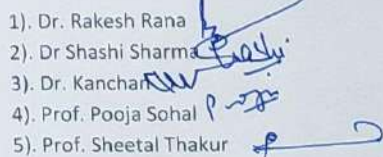 1). Dr. Rakesh Rana
2). Dr Shashi Sharma
3). Dr. Kanchan
4). Prof. Pooja Sohal
5). Prof. Sheetal Thakur